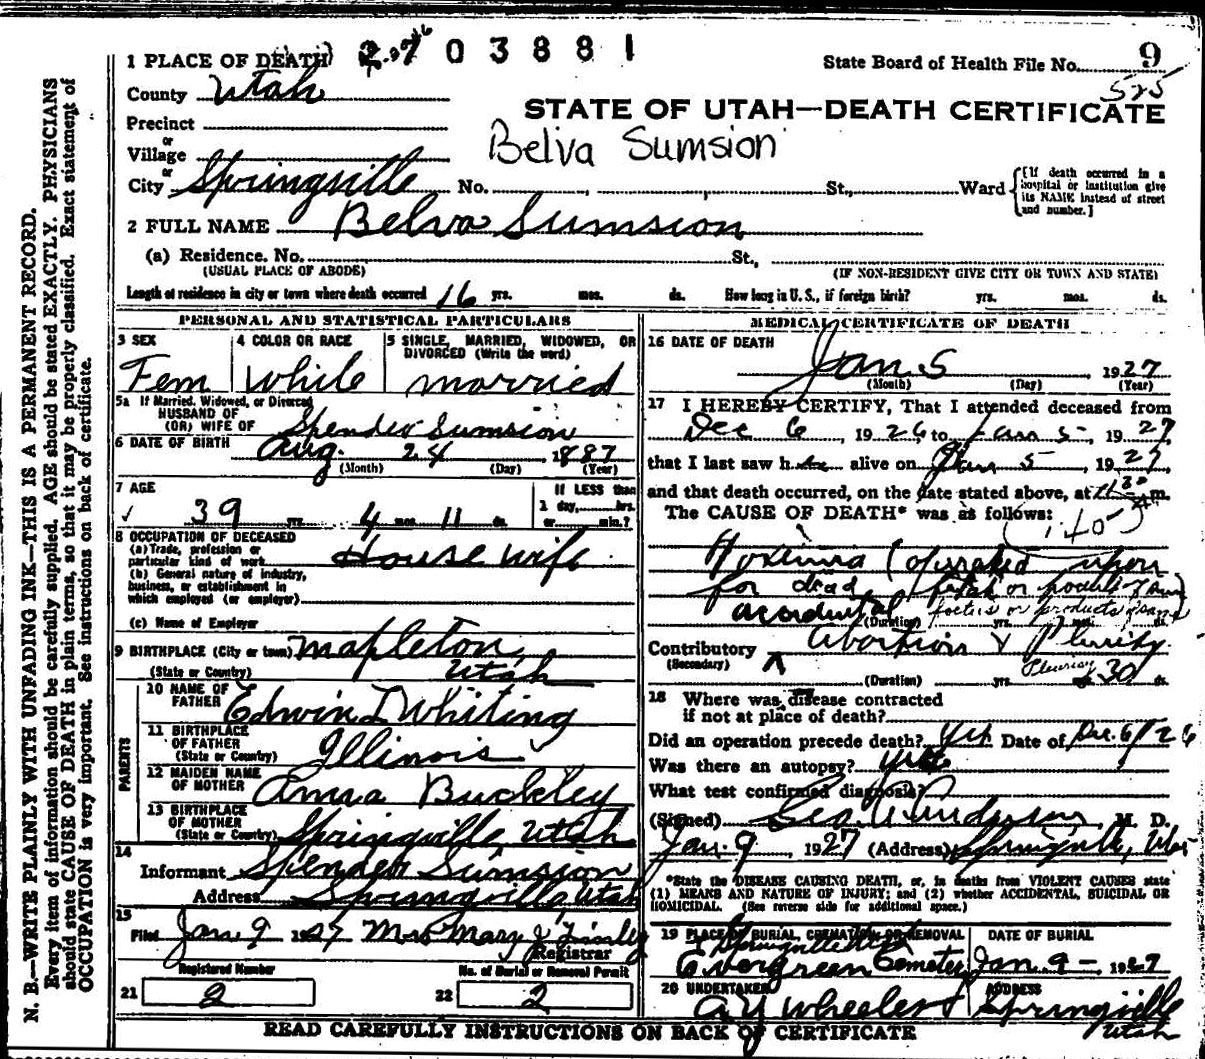 1 PLACE OF DEATH 2703881
State Board of Health File No. 9
525
County Utah
STATE OF UTAH—DEATH CERTIFICATE
Precinct
or
Village
Belva Sumsion
or
City Springville No. , , St., Ward
[If death occurred in a hospital or institution give its NAME instead of street and number.]
2 FULL NAME Belva Sumsion
(a) Residence. No. St.,
(USUAL PLACE OF ABODE) (IF NON-RESIDENT GIVE CITY OR TOWN AND STATE)
Length of residence in city or town where death occurred 16 yrs. mos. ds. How long in U. S., if foreign birth? yrs. mos. ds.
PERSONAL AND STATISTICAL PARTICULARS
3 SEX 4 COLOR OR RACE 5 SINGLE, MARRIED, WIDOWED, OR DIVORCED (Write the word)
Fem White married
5a If Married, Widowed, or Divorced
HUSBAND OF
(OR) WIFE OF Spender Sumsion
6 DATE OF BIRTH Aug. 24, 1887
(Month) (Day) (Year)
7 AGE If LESS than
1 day, hrs.
39 yrs. 4 mos. 11 ds. or min.?
8 OCCUPATION OF DECEASED
(a) Trade, profession or particular kind of work House wife
(b) General nature of industry, business, or establishment in which employed (or employer)
(c) Name of Employer
9 BIRTHPLACE (City or town) Mapleton,
(State or Country) Utah
PARENTS
10 NAME OF FATHER Edwin Whiting
11 BIRTHPLACE OF FATHER (State or Country) Illinois
12 MAIDEN NAME OF MOTHER Anna Buckley
13 BIRTHPLACE OF MOTHER (State or Country) Springville, Utah
14
Informant Spender Sumsion
Address Springville, Utah
15
Filed Jan 9 1927 Mrs Mary J Finley
Registrar
Registered Number No. of Burial or Removal Permit
21 2 22 2
MEDICAL CERTIFICATE OF DEATH
16 DATE OF DEATH
Jan 5 1927
(Month) (Day) (Year)
17 I HEREBY CERTIFY, That I attended deceased from
Dec 6, 1926 to Jan 5, 1927,
that I last saw her alive on Jan 5, 1927,
and that death occurred, on the date stated above, at 11 30 m.
The CAUSE OF DEATH* was as follows:
140
Toxemia (operated upon
for dead fetus or products of
accidental foetus or products of
(Duration) yrs. mos. ds.
Contributory abortion & Pleurisy
(Secondary) Pleurisy
(Duration) yrs. 30 ds.
18 Where was disease contracted
if not at place of death?
Did an operation precede death? Yes Date of Dec. 6/26
Was there an autopsy? Yes
What test confirmed diagnosis?
(Signed) Geo. Anderson M. D.
Jan. 9, 1927 (Address) Springville, Utah
*State the DISEASE CAUSING DEATH, or, in deaths from VIOLENT CAUSES state (1) MEANS AND NATURE OF INJURY; and (2) whether ACCIDENTAL, SUICIDAL OR HOMICIDAL. (See reverse side for additional space.)
19 PLACE OF BURIAL, CREMATION OR REMOVAL DATE OF BURIAL
Springville
Evergreen Cemetery Jan 9 — 1927
20 UNDERTAKER ADDRESS
A Y Wheeler Springville
Utah
READ CAREFULLY INSTRUCTIONS ON BACK OF CERTIFICATE
N. B.—WRITE PLAINLY WITH UNFADING INK—THIS IS A PERMANENT RECORD.
Every item of information should be carefully supplied. AGE should be stated EXACTLY. PHYSICIANS
should state CAUSE OF DEATH in plain terms, so that it may be properly classified. Exact statement of
OCCUPATION is very important. See instructions on back of certificate.